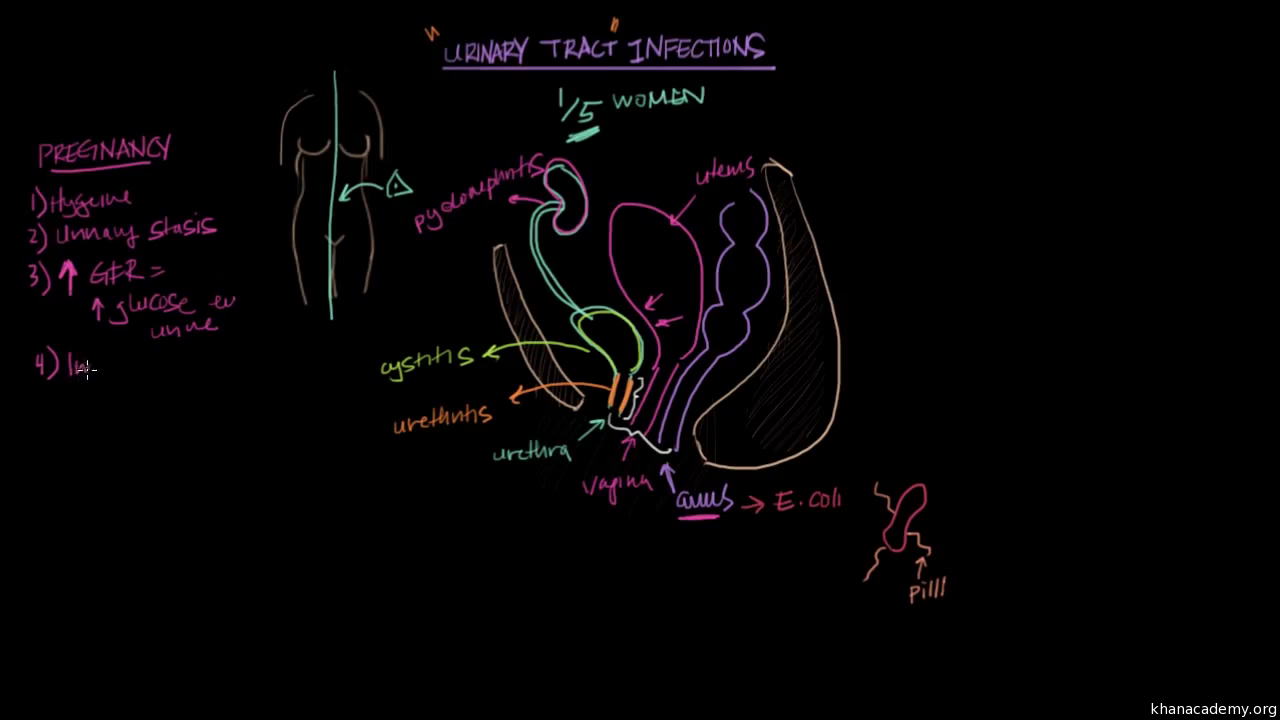 "URINARY TRACT INFECTIONS"
1/5 WOMEN
PREGNANCY
1) Hygeine
2) Urinary stasis
3) ↑ GFR =
↑ glucose in
urine
4) In
pyelonephritis
uterus
cystitis
urethritis
urethra
vagina
anus → E. coli
pilli
khanacademy.org